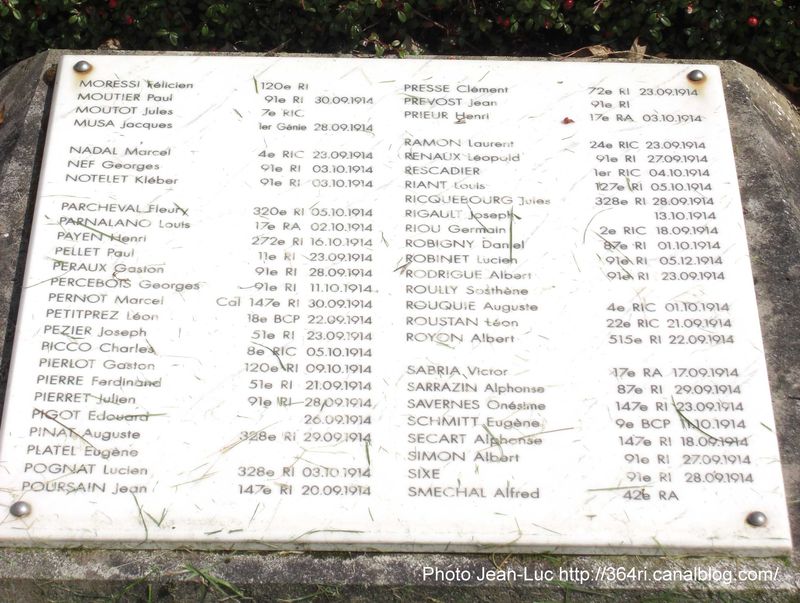 MORESSI Félicien 120e RI
MOUTIER Paul 91e RI 30.09.1914
MOUTOT Jules 7e RIC
MUSA Jacques 1er Génie 28.09.1914
NADAL Marcel 4e RIC 23.09.1914
NEF Georges 91e RI 03.10.1914
NOTELET Kléber 91e RI 03.10.1914
PARCHEVAL Fleury 320e RI 05.10.1914
PARNALANO Louis 17e RA 02.10.1914
PAYEN Henri 272e RI 16.10.1914
PELLET Paul 11e RI 23.09.1914
PERAUX Gaston 91e RI 28.09.1914
PERCEBOIS Georges 91e RI 11.10.1914
PERNOT Marcel Cal 147e RI 30.09.1914
PETITPREZ Léon 18e BCP 22.09.1914
PEZIER Joseph 51e RI 23.09.1914
PICCO Charles 8e RIC 05.10.1914
PIERLOT Gaston 120e RI 09.10.1914
PIERRE Ferdinand 51e RI 21.09.1914
PIERRET Julien 91e RI 28.09.1914
PIGOT Edouard 26.09.1914
PINAT Auguste 328e RI 29.09.1914
PLATEL Eugène
POGNAT Lucien 328e RI 03.10.1914
POURSAIN Jean 147e RI 20.09.1914
PRESSE Clément 72e RI 23.09.1914
PREVOST Jean 91e RI
PRIEUR Henri 17e RA 03.10.1914
RAMON Laurent 24e RIC 23.09.1914
RENAUX Léopold 91e RI 27.09.1914
RESCADIER 1er RIC 04.10.1914
RIANT Louis 127e RI 05.10.1914
RICQUEBOURG Jules 328e RI 28.09.1914
RIGAULT Joseph 13.10.1914
RIOU Germain 2e RIC 18.09.1914
ROBIGNY Daniel 87e RI 01.10.1914
ROBINET Lucien 91e RI 05.12.1914
RODRIGUE Albert 91e RI 23.09.1914
ROULLY Sosthène
ROUQUIE Auguste 4e RIC 01.10.1914
ROUSTAN Léon 22e RIC 21.09.1914
ROYON Albert 515e RI 22.09.1914
SABRIA Victor 17e RA 17.09.1914
SARRAZIN Alphonse 87e RI 29.09.1914
SAVERNES Onésime 147e RI 23.09.1914
SCHMITT Eugène 9e BCP 11.10.1914
SECART Alphonse 147e RI 18.09.1914
SIMON Albert 91e RI 27.09.1914
SIXE 91e RI 28.09.1914
SMECHAL Alfred 42e RA
Photo Jean-Luc http://364ri.canalblog.com/